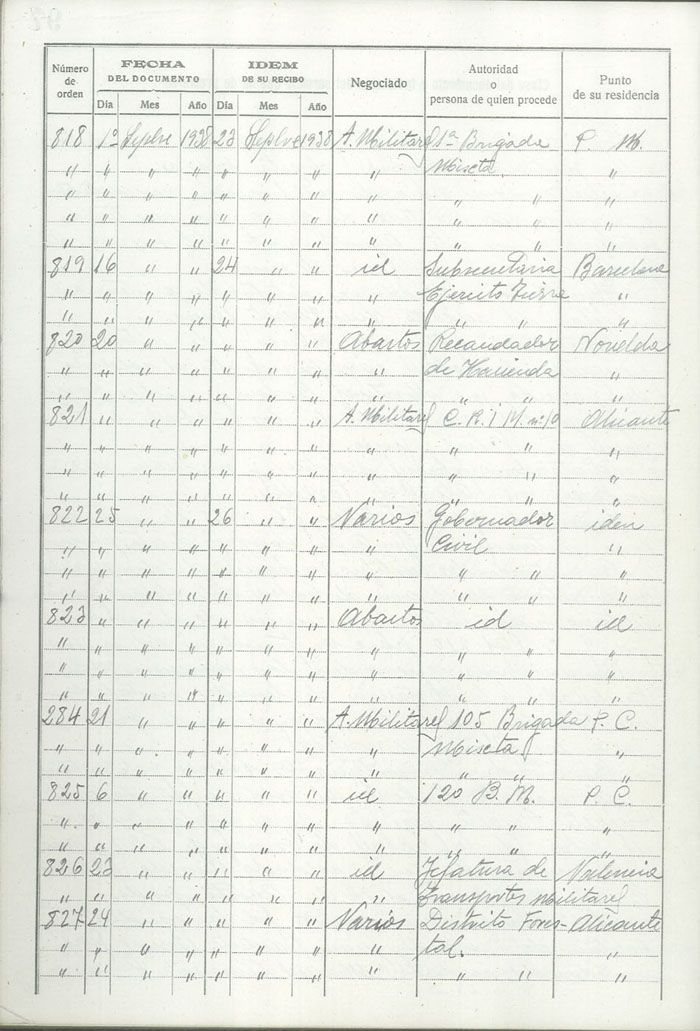 Número de orden FECHA DEL DOCUMENTO IDEM DE SU RECIBO Negociado Autoridad o persona de quien procede Punto de su residencia
Día Mes Año Día Mes Año
818 1º Sepbre 1938 23 Sepbre 1938 A. Militares 1ª Brigada P. M.
" " " " " " " " Mixta "
" " " " " " " " " " "
" " " " " " " " " " "
" " " " " " " " " " "
819 16 " " 24 " " id Subsecretaria Barcelona
" " " " " " " " Ejercito Tierra "
" " " " " " " " " " "
820 20 " " " " " Abastos Recaudador Novelda
" " " " " " " " de Hacienda "
" " " " " " " " " " "
821 " " " " " " A. Militares C. R. I M. nº 10 Alicante
" " " " " " " " " " "
" " " " " " " " " " "
" " " " " " " " " " "
822 25 " " 26 " " Varios Gobernador iden
" " " " " " " " Civil "
" " " " " " " " " " "
" " " " " " " " " " "
823 " " " " " " Abastos id id
" " " " " " " " " " "
" " " " " " " " " " "
" " " " " " " " " " "
284 21 " " " " " A. Militares 105 Brigada P. C.
" " " " " " " " Mixta "
" " " " " " " " " " "
825 6 " " " " " id 120 B. M. P. C.
" " " " " " " " " " "
" " " " " " " " " " "
826 23 " " " " " id Jefatura de Valencia
" " " " " " " " Transportes Militares
827 24 " " " " " Varios Distrito Fores- Alicante
" " " " " " " " tal. "
" " " " " " " " " " "